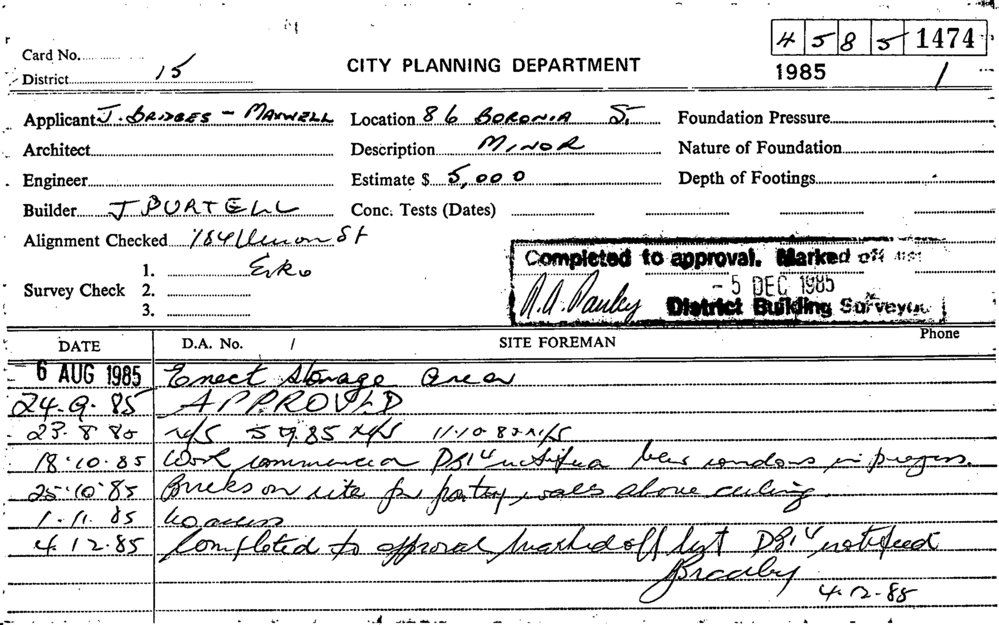 4 5 8 5 1474
Card No.
District 15
CITY PLANNING DEPARTMENT
1985 /
Applicant J. BRIDGES - MAXWELL Location 86 BORONIA ST. Foundation Pressure
Architect Description MINOR Nature of Foundation
Engineer Estimate $ 5,000 Depth of Footings
Builder J PURTELL Conc. Tests (Dates)
Alignment Checked 184 Union St
Completed to approval. Marked off
1. Ersko
- 5 DEC 1985
Survey Check 2.
District Building Surveyor
3.
DATE D.A. No. / SITE FOREMAN Phone
6 AUG 1985 Erect Storage area
24.9.85 APPROVED
23.8.85 N/S 5 9.85 N/S 11.10.85 N/S
18.10.85 Work commenced DBI notified new windows in progress.
25.10.85 Bricks on site for party walls above ceiling
1.11.85 No access
4.12.85 Completed to approval marked off list DBI notified
4.12.85